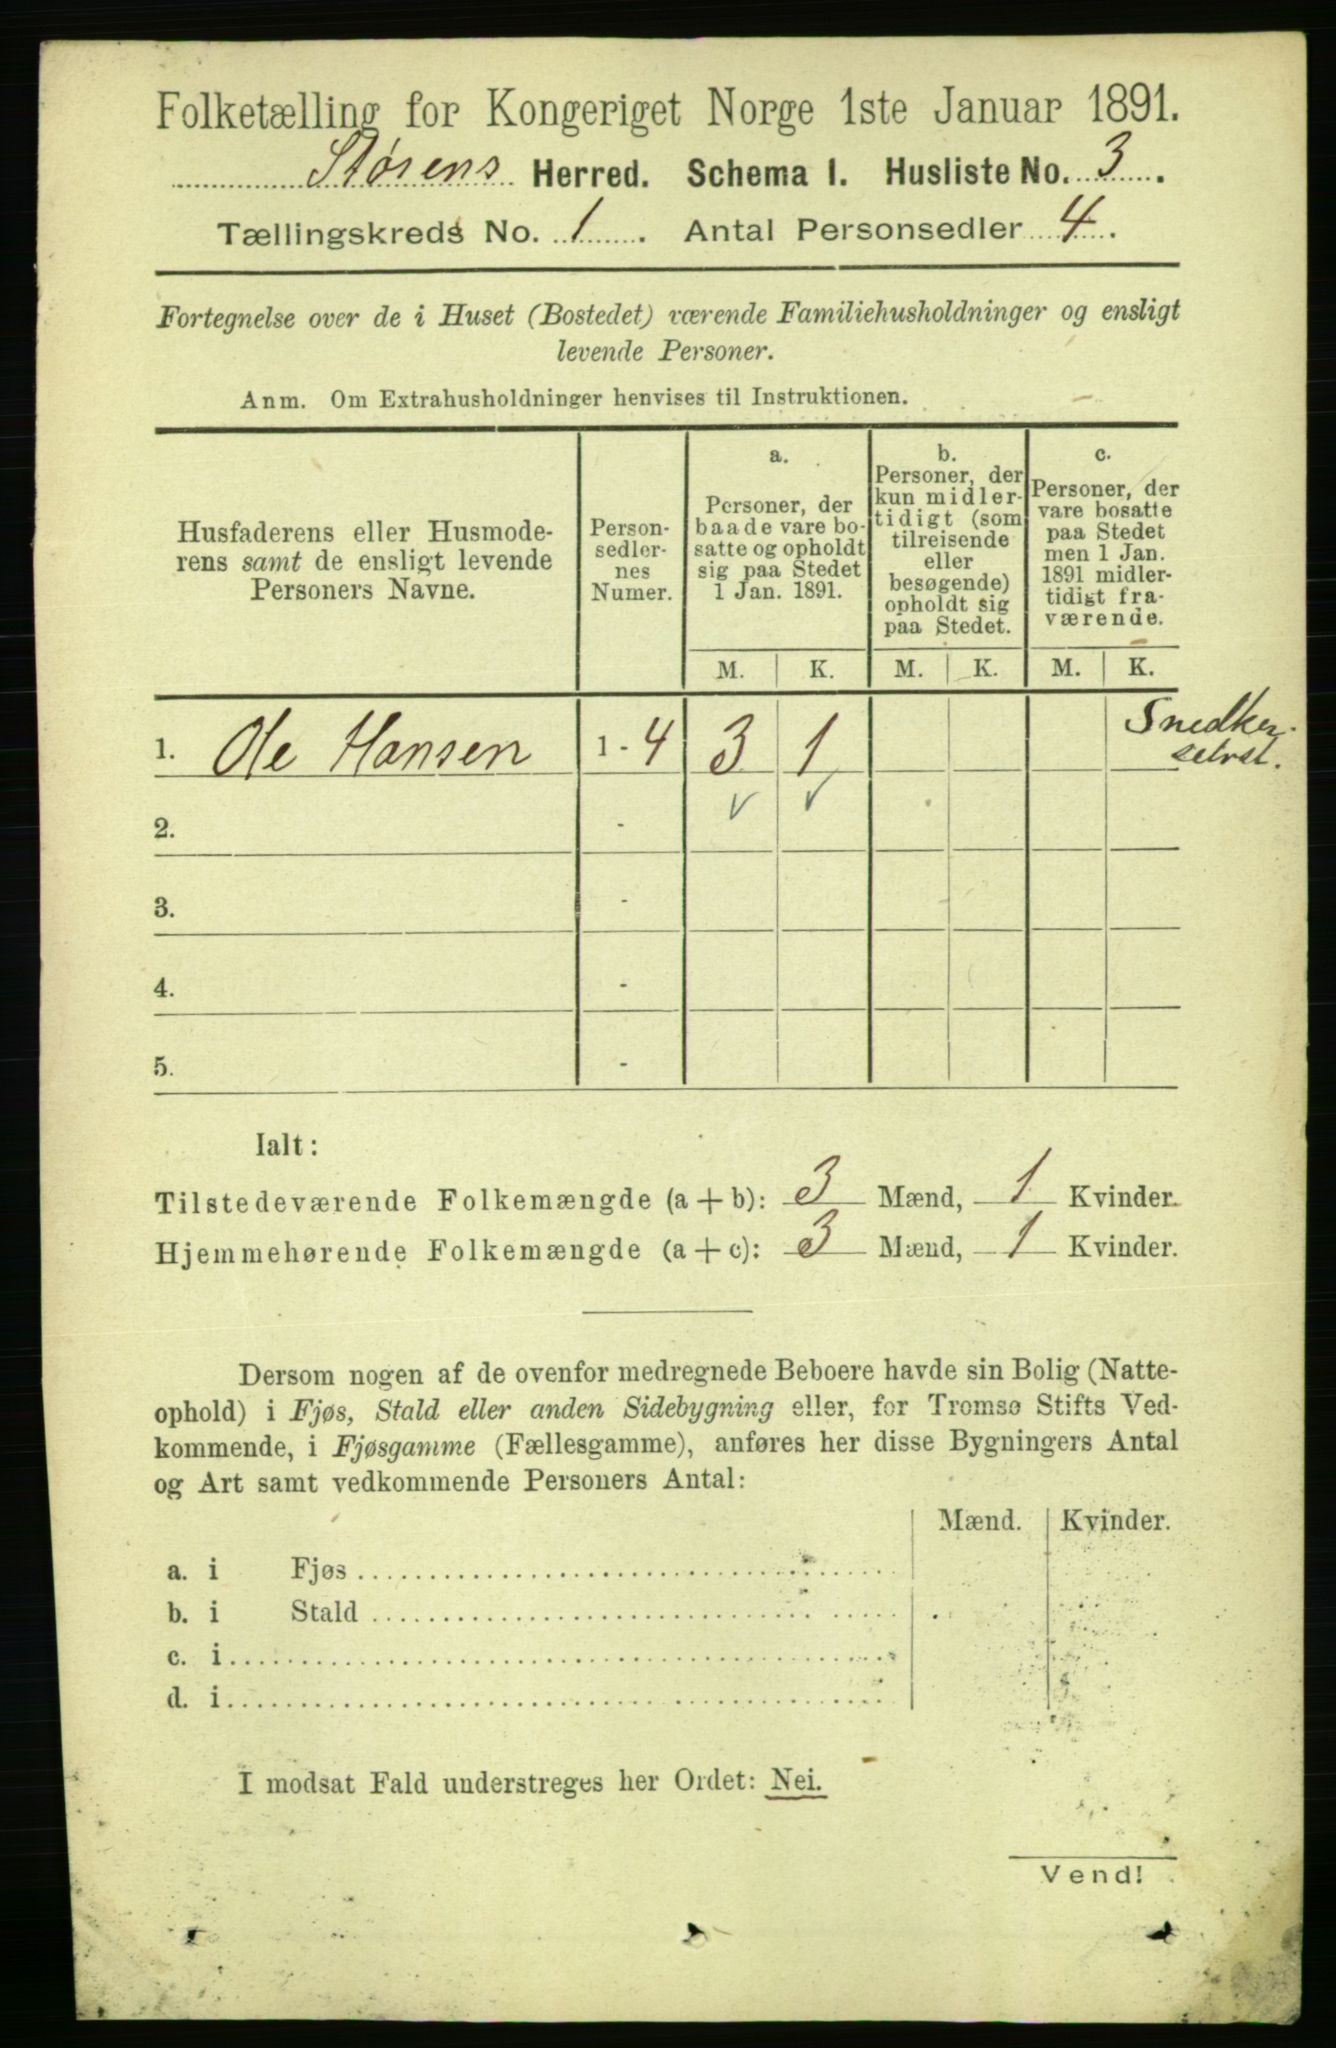 Folketælling for Kongeriget Norge 1ste Januar 1891.
Størens Herred. Schema 1. Husliste No. 3.
Tællingskreds No. 1. Antal Personsedler 4.
Fortegnelse over de i Huset (Bostedet) værende Familiehusholdninger og ensligt
levende Personer.
Anm. Om Extrahusholdninger henvises til Instruktionen.
Husfaderens eller Husmode-
rens samt de ensligt levende
Personers Navne.
Person-
sedler-
nes
Numer.
a.
Personer, der
baade vare bo-
satte og opholdt
sig paa Stedet
1 Jan. 1891.
b.
Personer, der
kun midler-
tidigt (som
tilreisende
eller
besøgende)
opholdt sig
paa Stedet.
c.
Personer, der
vare bosatte
paa Stedet
men 1 Jan.
1891 midler-
tidigt fra-
værende.
M. K. M. K. M. K.
1. Ole Hansen 1 - 4 3 1 Snedker.
selvst.
✓ ✓
2. -
3. -
4. -
5. -
Ialt:
Tilstedeværende Folkemængde (a + b): 3 Mænd, 1 Kvinder.
Hjemmehørende Folkemængde (a + c): 3 Mænd, 1 Kvinder.
Dersom nogen af de ovenfor medregnede Beboere havde sin Bolig (Natte-
ophold) i Fjøs, Stald eller anden Sidebygning eller, for Tromsø Stifts Ved-
kommende, i Fjøsgamme (Fællesgamme), anføres her disse Bygningers Antal
og Art samt vedkommende Personers Antal:
Mænd. Kvinder.
a. i Fjøs
b. i Stald
c. i
d. i
I modsat Fald understreges her Ordet: Nei.
Vend!